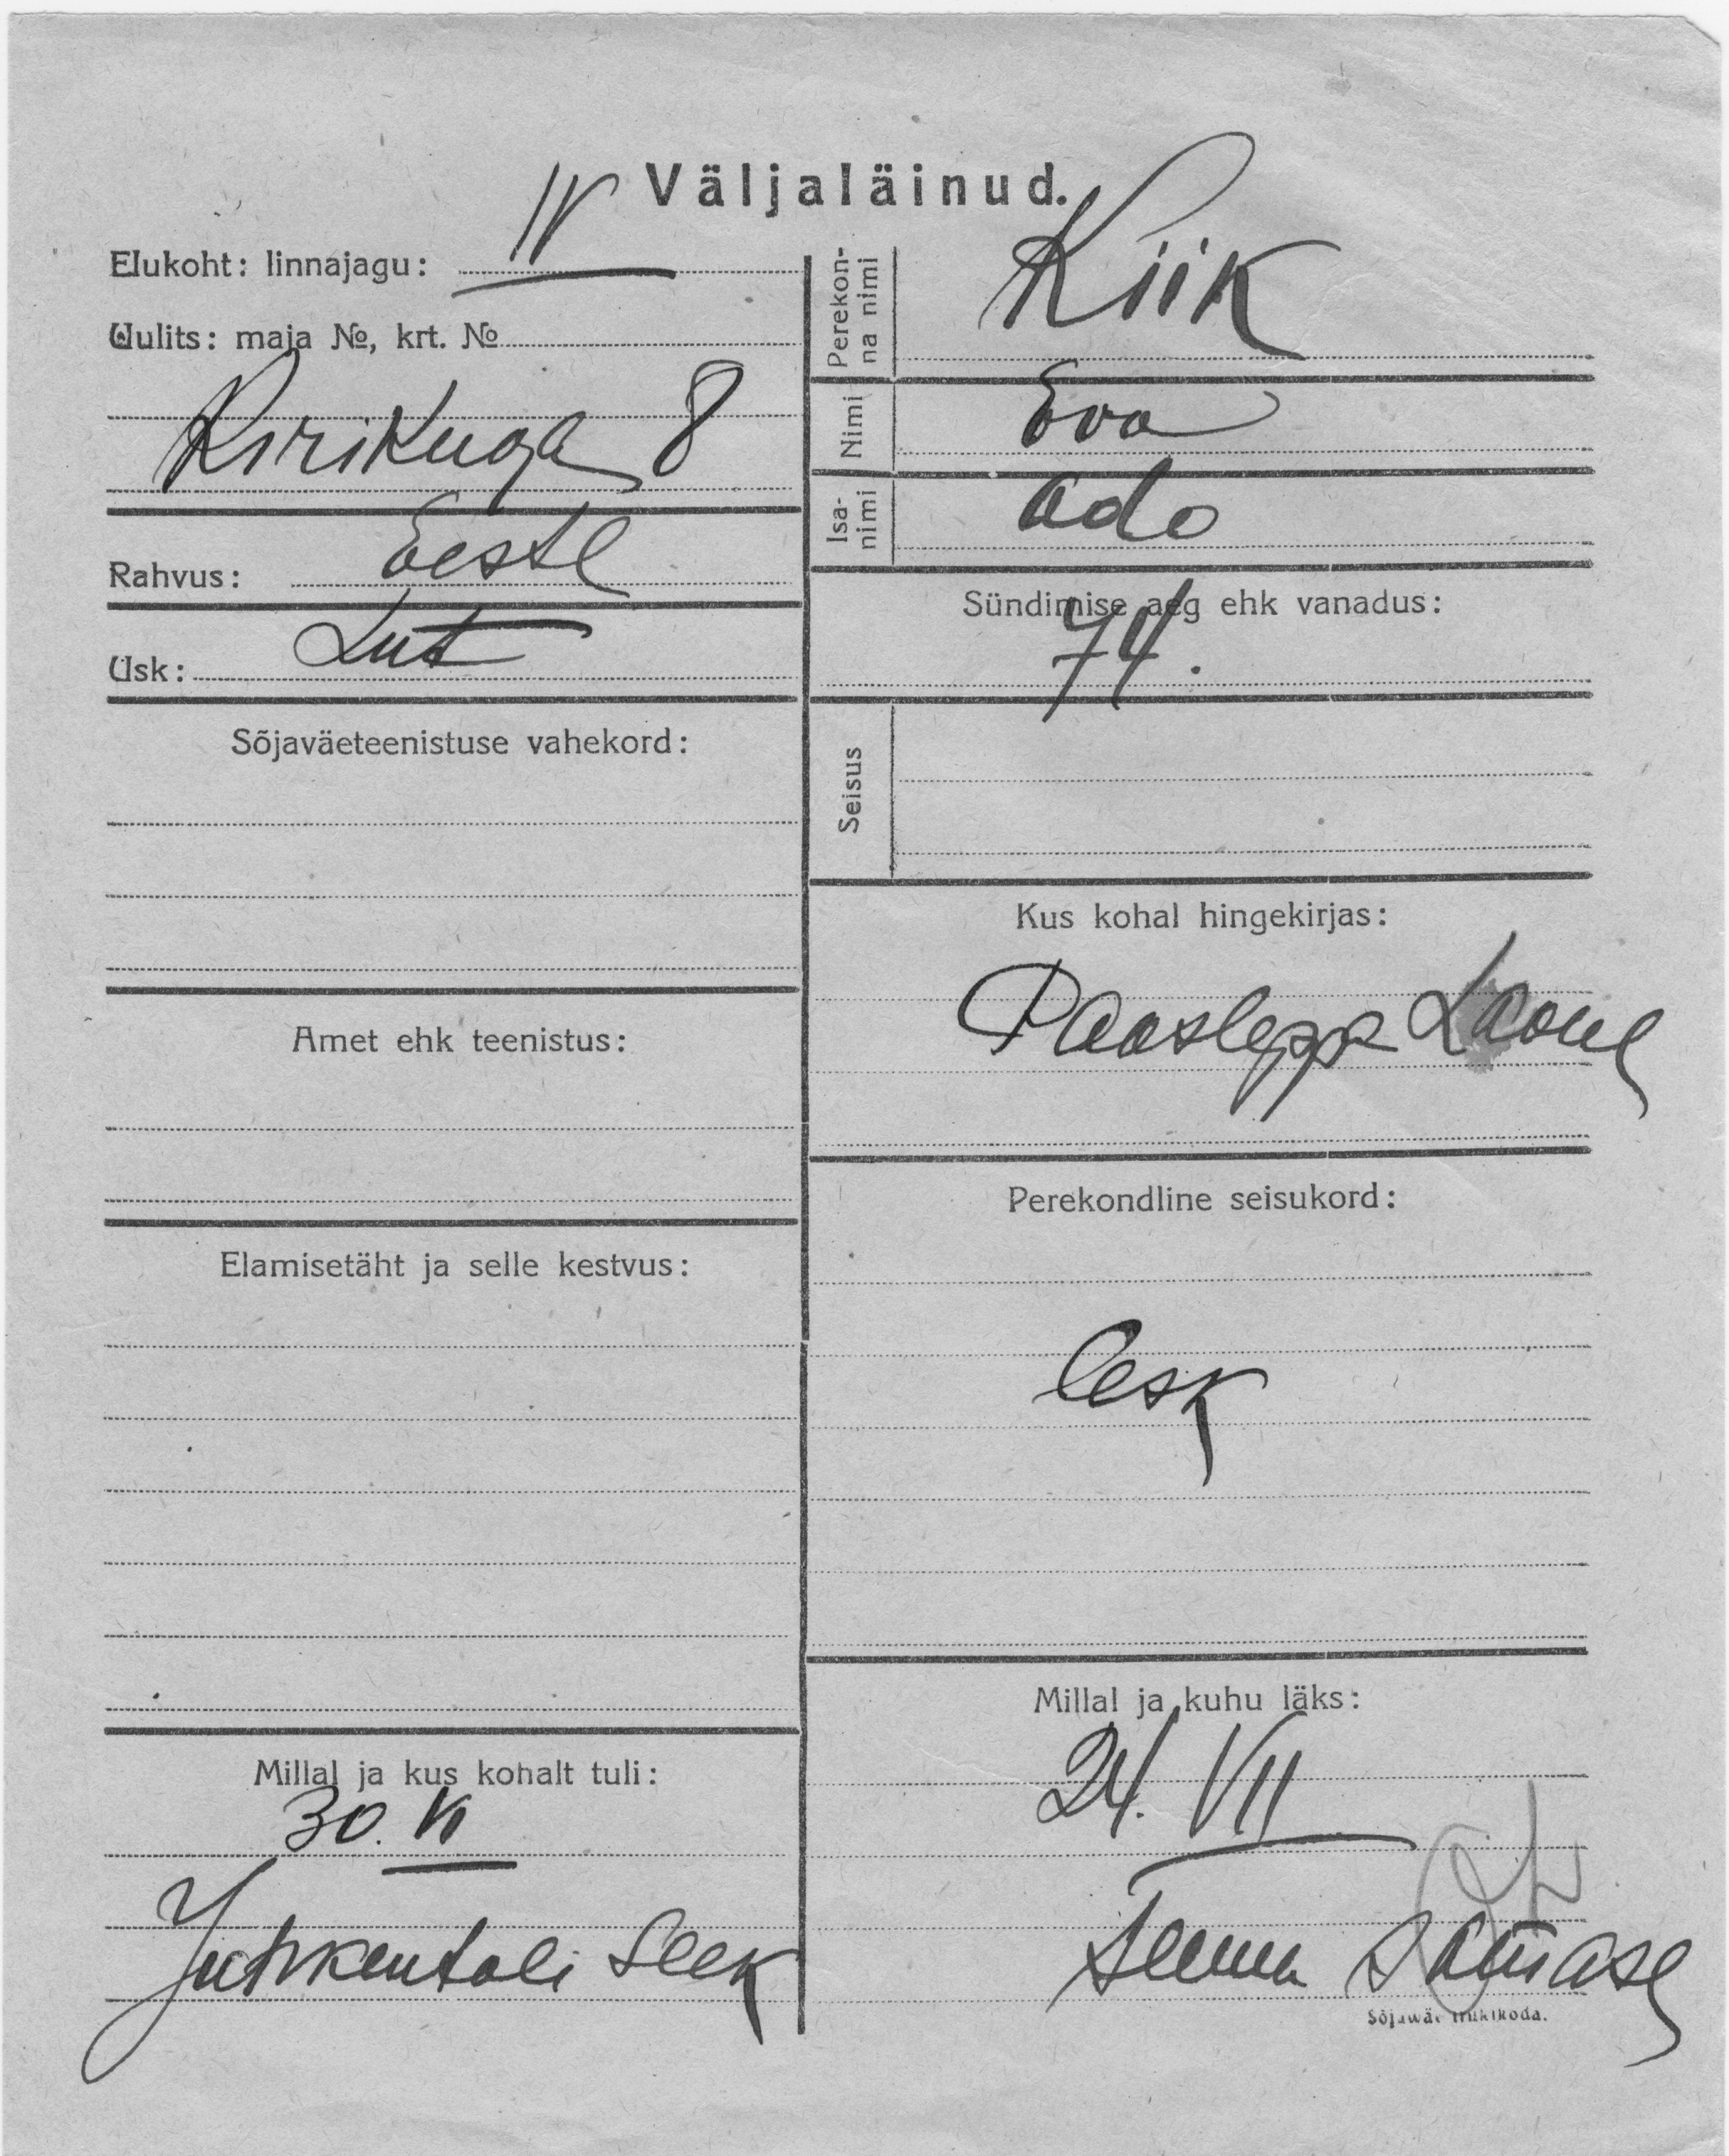 Väljaläinud.
Elukoht: linnajagu: IV
Uulits: maja №, krt. №
Kirikuga 8
Rahvus: Eestl
Usk: Lut
Sõjaväeteenistuse vahekord:
Amet ehk teenistus:
Elamisetäht ja selle kestvus:
Millal ja kus kohalt tuli:
30. VI
Juhkentali Seek
Perekon-
na nimi
Kiik
Nimi Eva
Isa-
nimi
Ado
Sündimise aeg ehk vanadus:
74.
Seisus
Kus kohal hingekirjas:
Paaslepp
Perekondline seisukord:
lesk
Millal ja kuhu läks:
24. VII
Sõjawäe trükikoda.